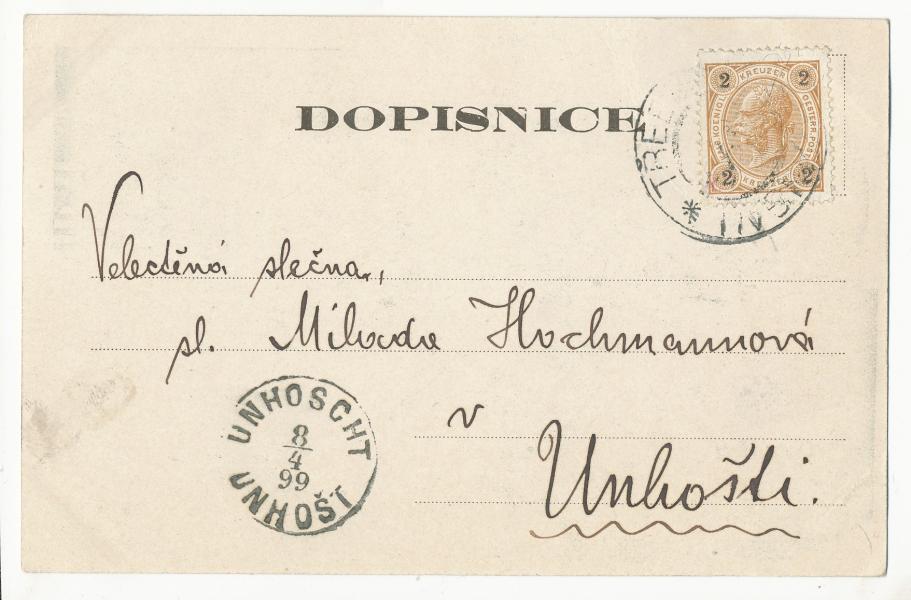 DOPISNICE
2 KREUZER 2
KAIS. KOENIGL. OESTERR. POST
2 2
Velectěná slečna,
sl. Milvada Hochmannová
v
Unhošti.
UNHOSCHT
8
4
99
UNHOŠT